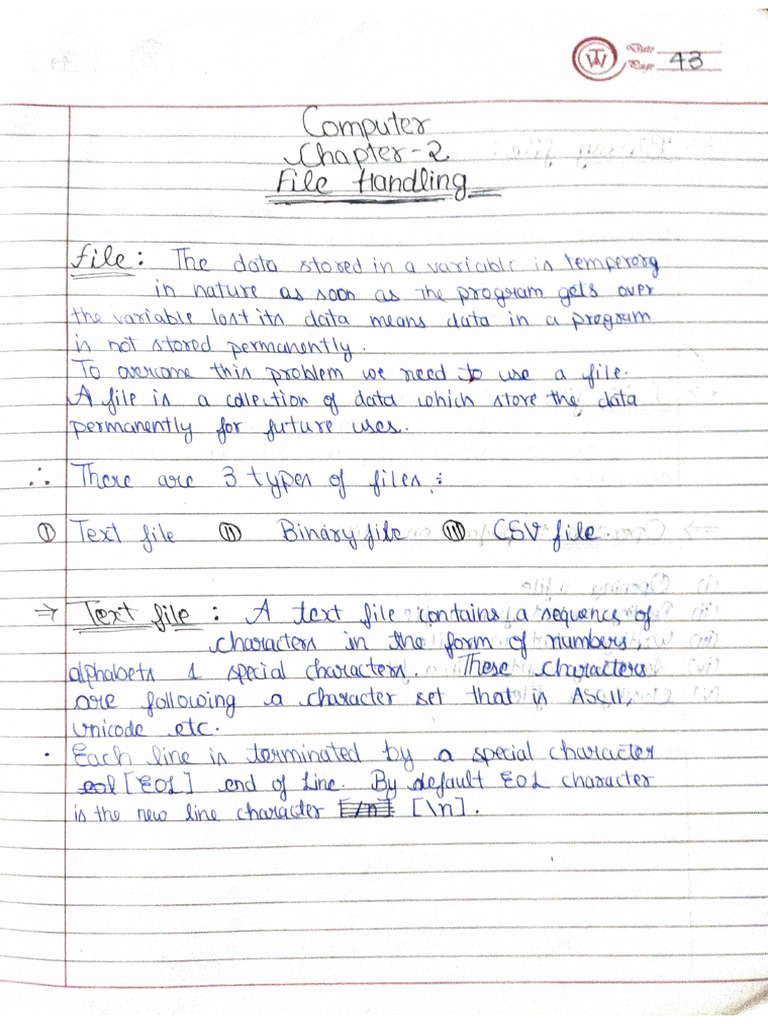 TW
Date
Page 43
Computer
Chapter-2
File Handling
file: The data stored in a variable is temperorg
in nature as soon as the program gets over
the variable lost its data means data in a program
is not stored permanently.
To overcome this problem we need to use a file.
A file is a collection of data which store the data
permanently for future uses.
∴ There are 3 types of files:
(i) Text file (ii) Binary file (iii) CSV file.
→ Text file: A text file contains a sequence of
characters in the form of numbers,
alphabets & special characters. These characters
are following a character set that is ASCII,
Unicode etc.
· Each line is terminated by a special character
eol [EOL] end of Line. By default EOL character
is the new line character [/n] [\n].